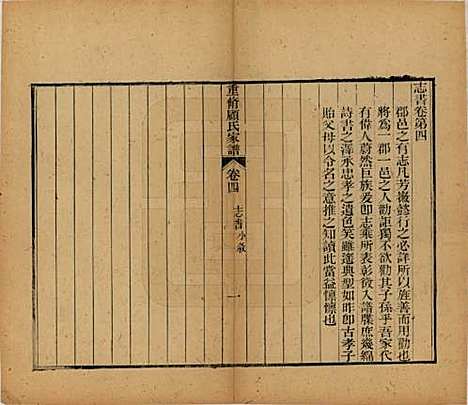 志書卷第四
郡邑之有志凡芳徽懿行之必詳所以旌善而用勸也
將為一郡一邑之人勸詎獨不欲勸其子孫乎吾家代
有偉人蔚然巨族爰卽志乘所表彰徵入譜牒庶幾綿
詩書之澤承忠孝之遺色笑雖遙典型如昨卽古孝子
貽父母以令名之意推之知讀此當益懍懍也
重脩顧氏家譜
卷四
志書小敘
一